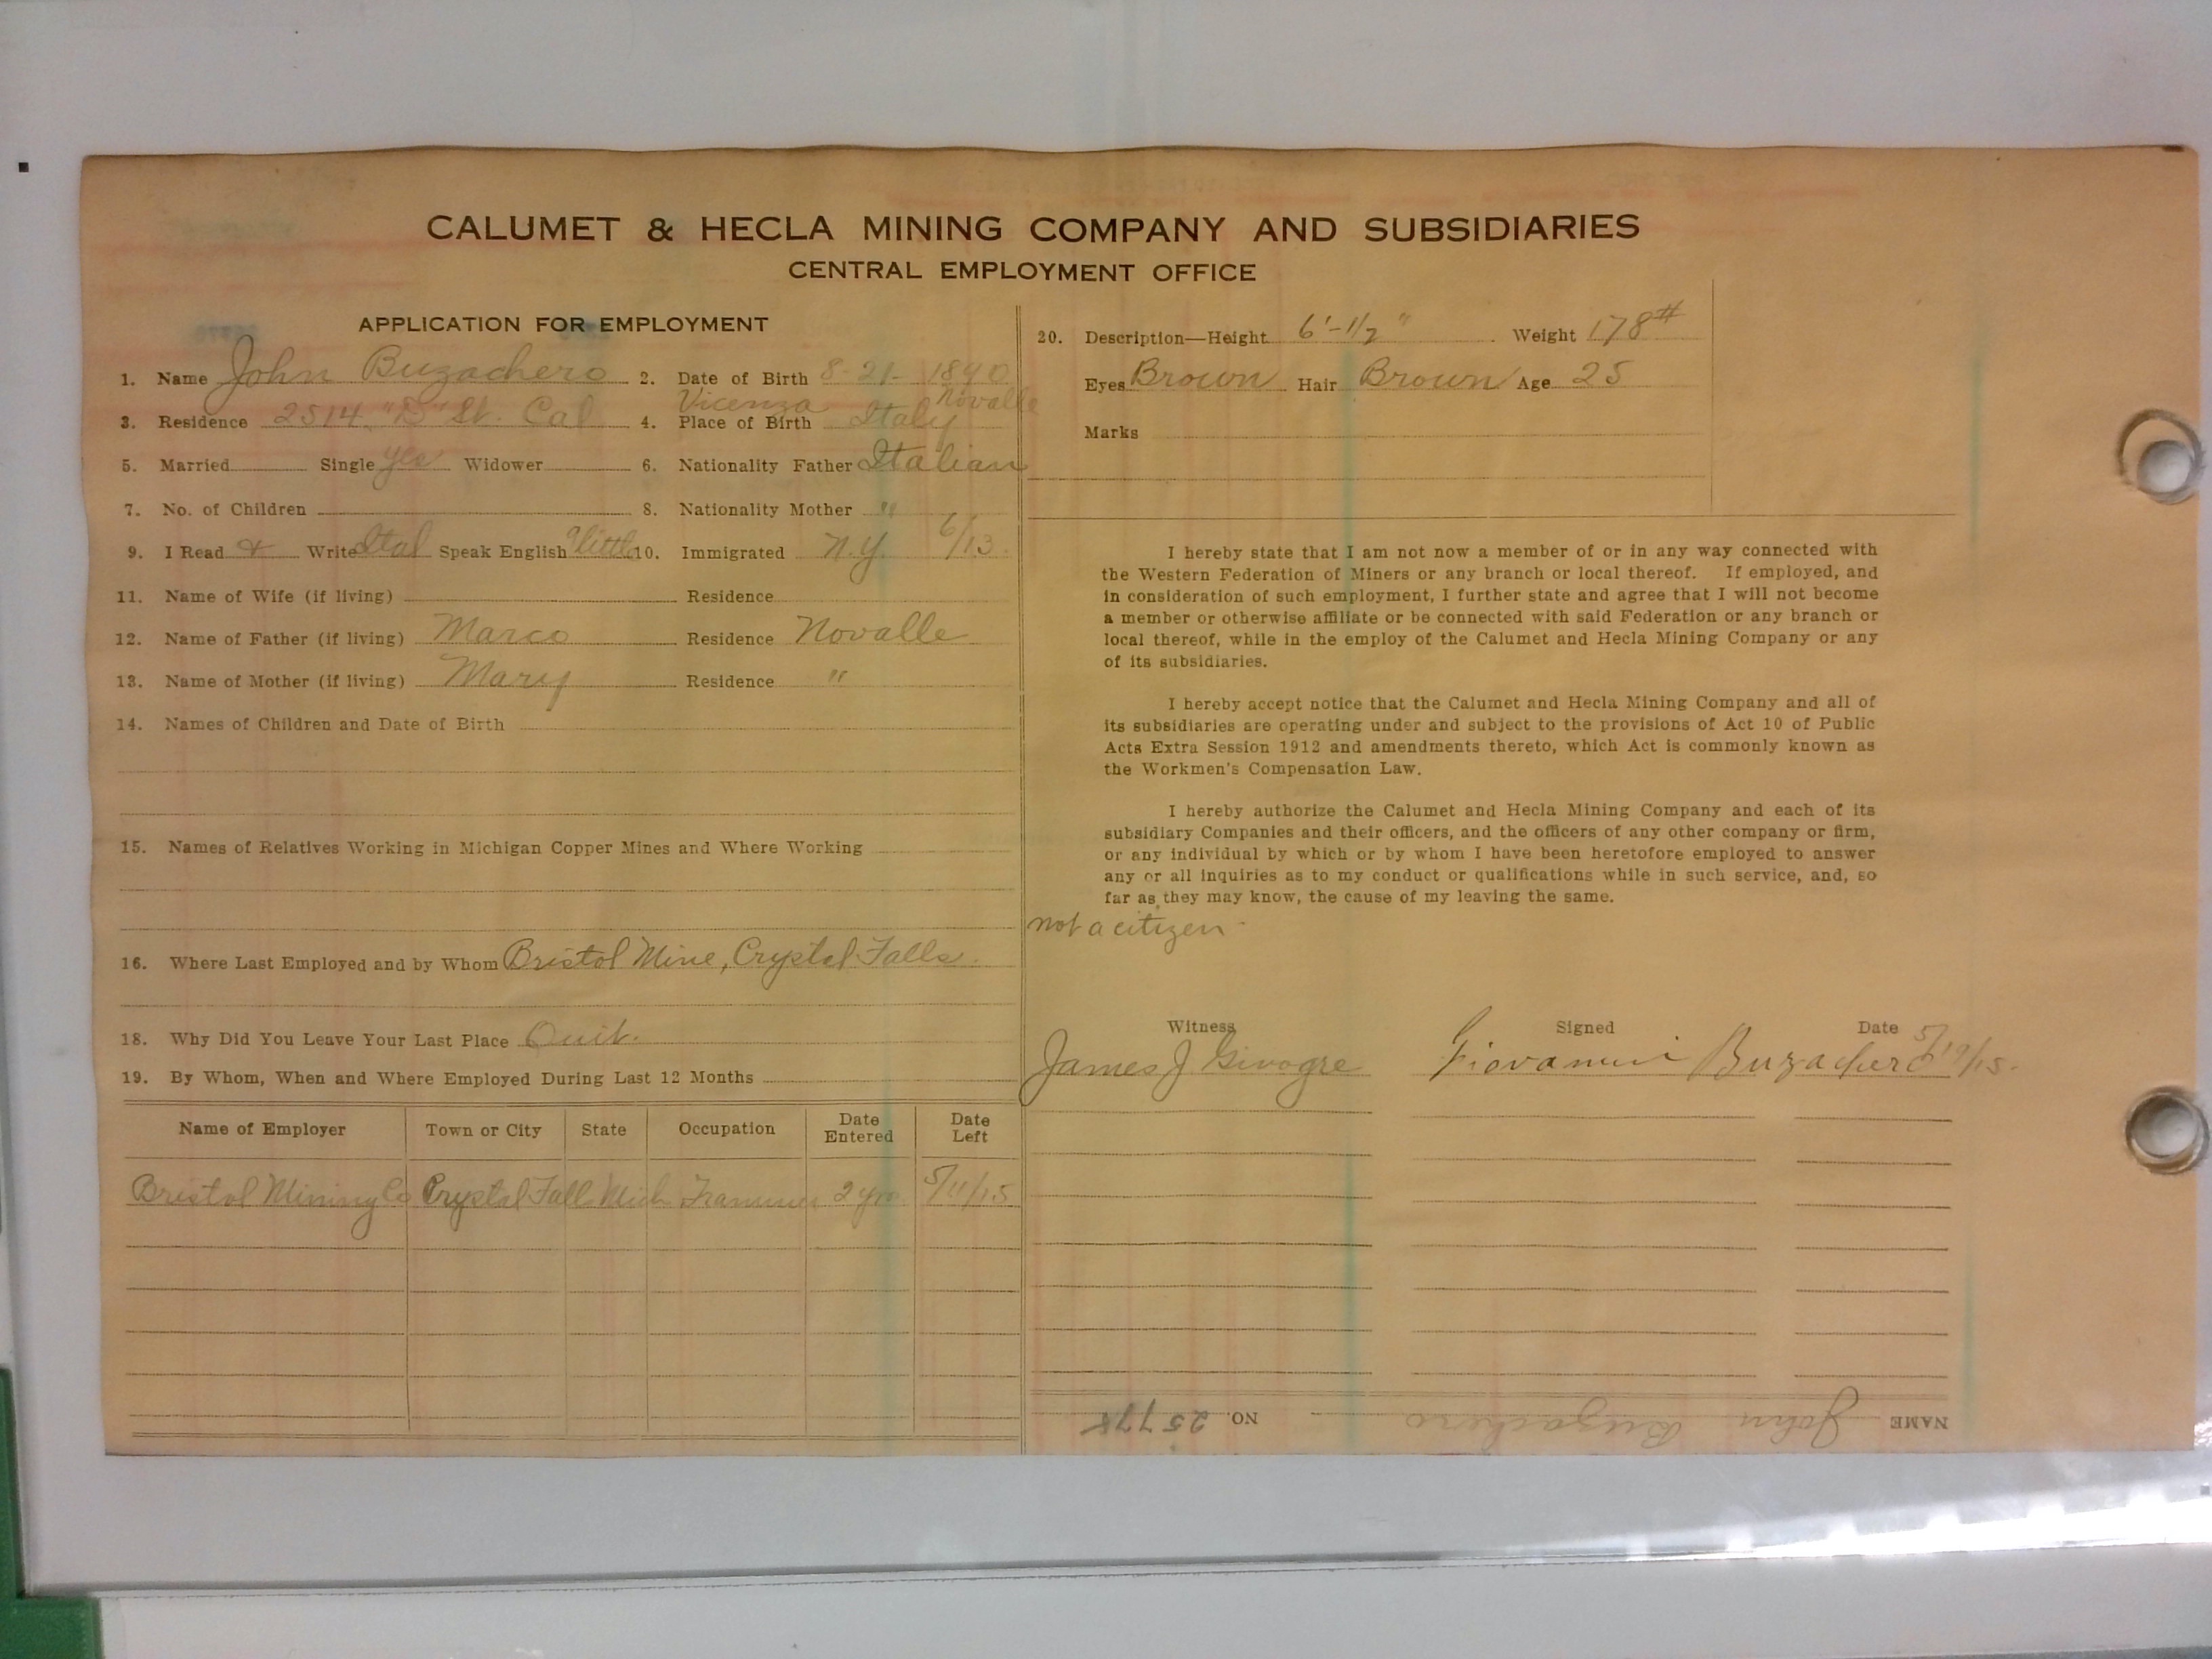 CALUMET & HECLA MINING COMPANY AND SUBSIDIARIES
CENTRAL EMPLOYMENT OFFICE
APPLICATION FOR EMPLOYMENT
1. Name John Buzachero 2. Date of Birth 8-21-1890
Vicenza Novalle
3. Residence 2514 "B" St. Cal 4. Place of Birth Italy
5. Married Single yes Widower 6. Nationality Father Italian
7. No. of Children 8. Nationality Mother "
9. I Read & Write Ital Speak English little 10. Immigrated N.Y. 6/13
11. Name of Wife (if living) Residence
12. Name of Father (if living) Marco Residence Novalle
13. Name of Mother (if living) Mary Residence "
14. Names of Children and Date of Birth
15. Names of Relatives Working in Michigan Copper Mines and Where Working
16. Where Last Employed and by Whom Bristol Mine, Crystal Falls.
18. Why Did You Leave Your Last Place Quit.
19. By Whom, When and Where Employed During Last 12 Months
Name of Employer Town or City State Occupation Date Entered Date Left
Bristol Mining Co Crystal Fall Mich Trammer 2 yrs. 5/11/15
20. Description—Height 6'-1/2" Weight 178#
Eyes Brown Hair Brown Age 25
Marks
I hereby state that I am not now a member of or in any way connected with
the Western Federation of Miners or any branch or local thereof. If employed, and
in consideration of such employment, I further state and agree that I will not become
a member or otherwise affiliate or be connected with said Federation or any branch or
local thereof, while in the employ of the Calumet and Hecla Mining Company or any
of its subsidiaries.
I hereby accept notice that the Calumet and Hecla Mining Company and all of
its subsidiaries are operating under and subject to the provisions of Act 10 of Public
Acts Extra Session 1912 and amendments thereto, which Act is commonly known as
the Workmen's Compensation Law.
I hereby authorize the Calumet and Hecla Mining Company and each of its
subsidiary Companies and their officers, and the officers of any other company or firm,
or any individual by which or by whom I have been heretofore employed to answer
any or all inquiries as to my conduct or qualifications while in such service, and, so
far as they may know, the cause of my leaving the same.
not a citizen
Witness Signed Date
James J. Givogre Giovanni Buzachero 5/19/15.
NAME John Buzachero NO. 25778